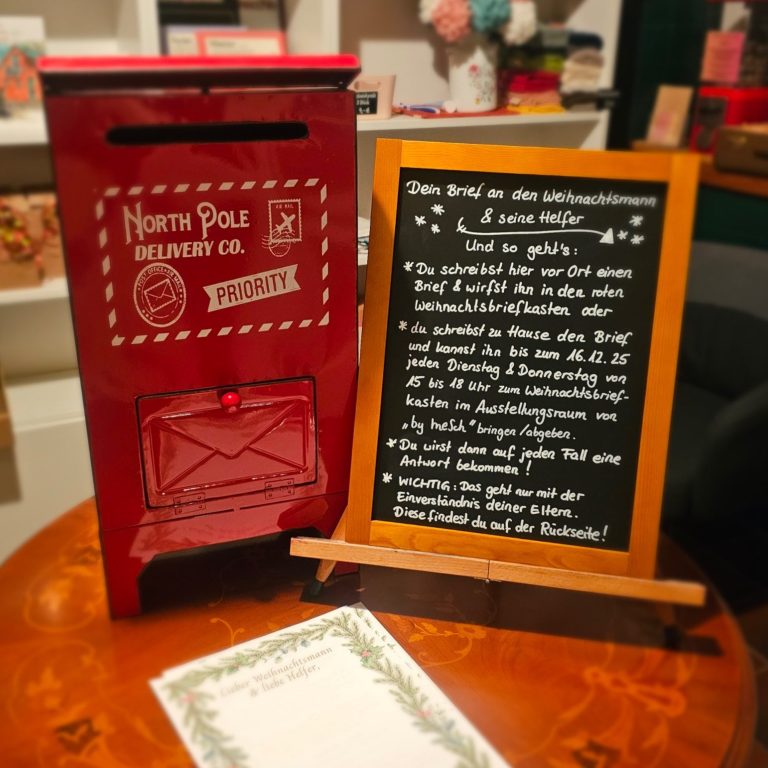 NORTH POLE
DELIVERY CO.
PRIORITY
Dein Brief an den Weihnachtsmann
& seine Helfer
Und so geht's:
* Du schreibst hier vor Ort einen
Brief & wirfst ihn in den roten
Weihnachtsbriefkasten oder
* du schreibst zu Hause den Brief
und kannst ihn bis zum 16.12.25
jeden Dienstag & Donnerstag von
15 bis 18 Uhr zum Weihnachtsbrief-
kasten im Ausstellungsraum von
„by meSch" bringen/abgeben.
* Du wirst dann auf jeden Fall eine
Antwort bekommen!
* WICHTIG: Das geht nur mit der
Einverständnis deiner Eltern.
Diese findest du auf der Rückseite!
Lieber Weihnachtsmann
& liebe Helfer,